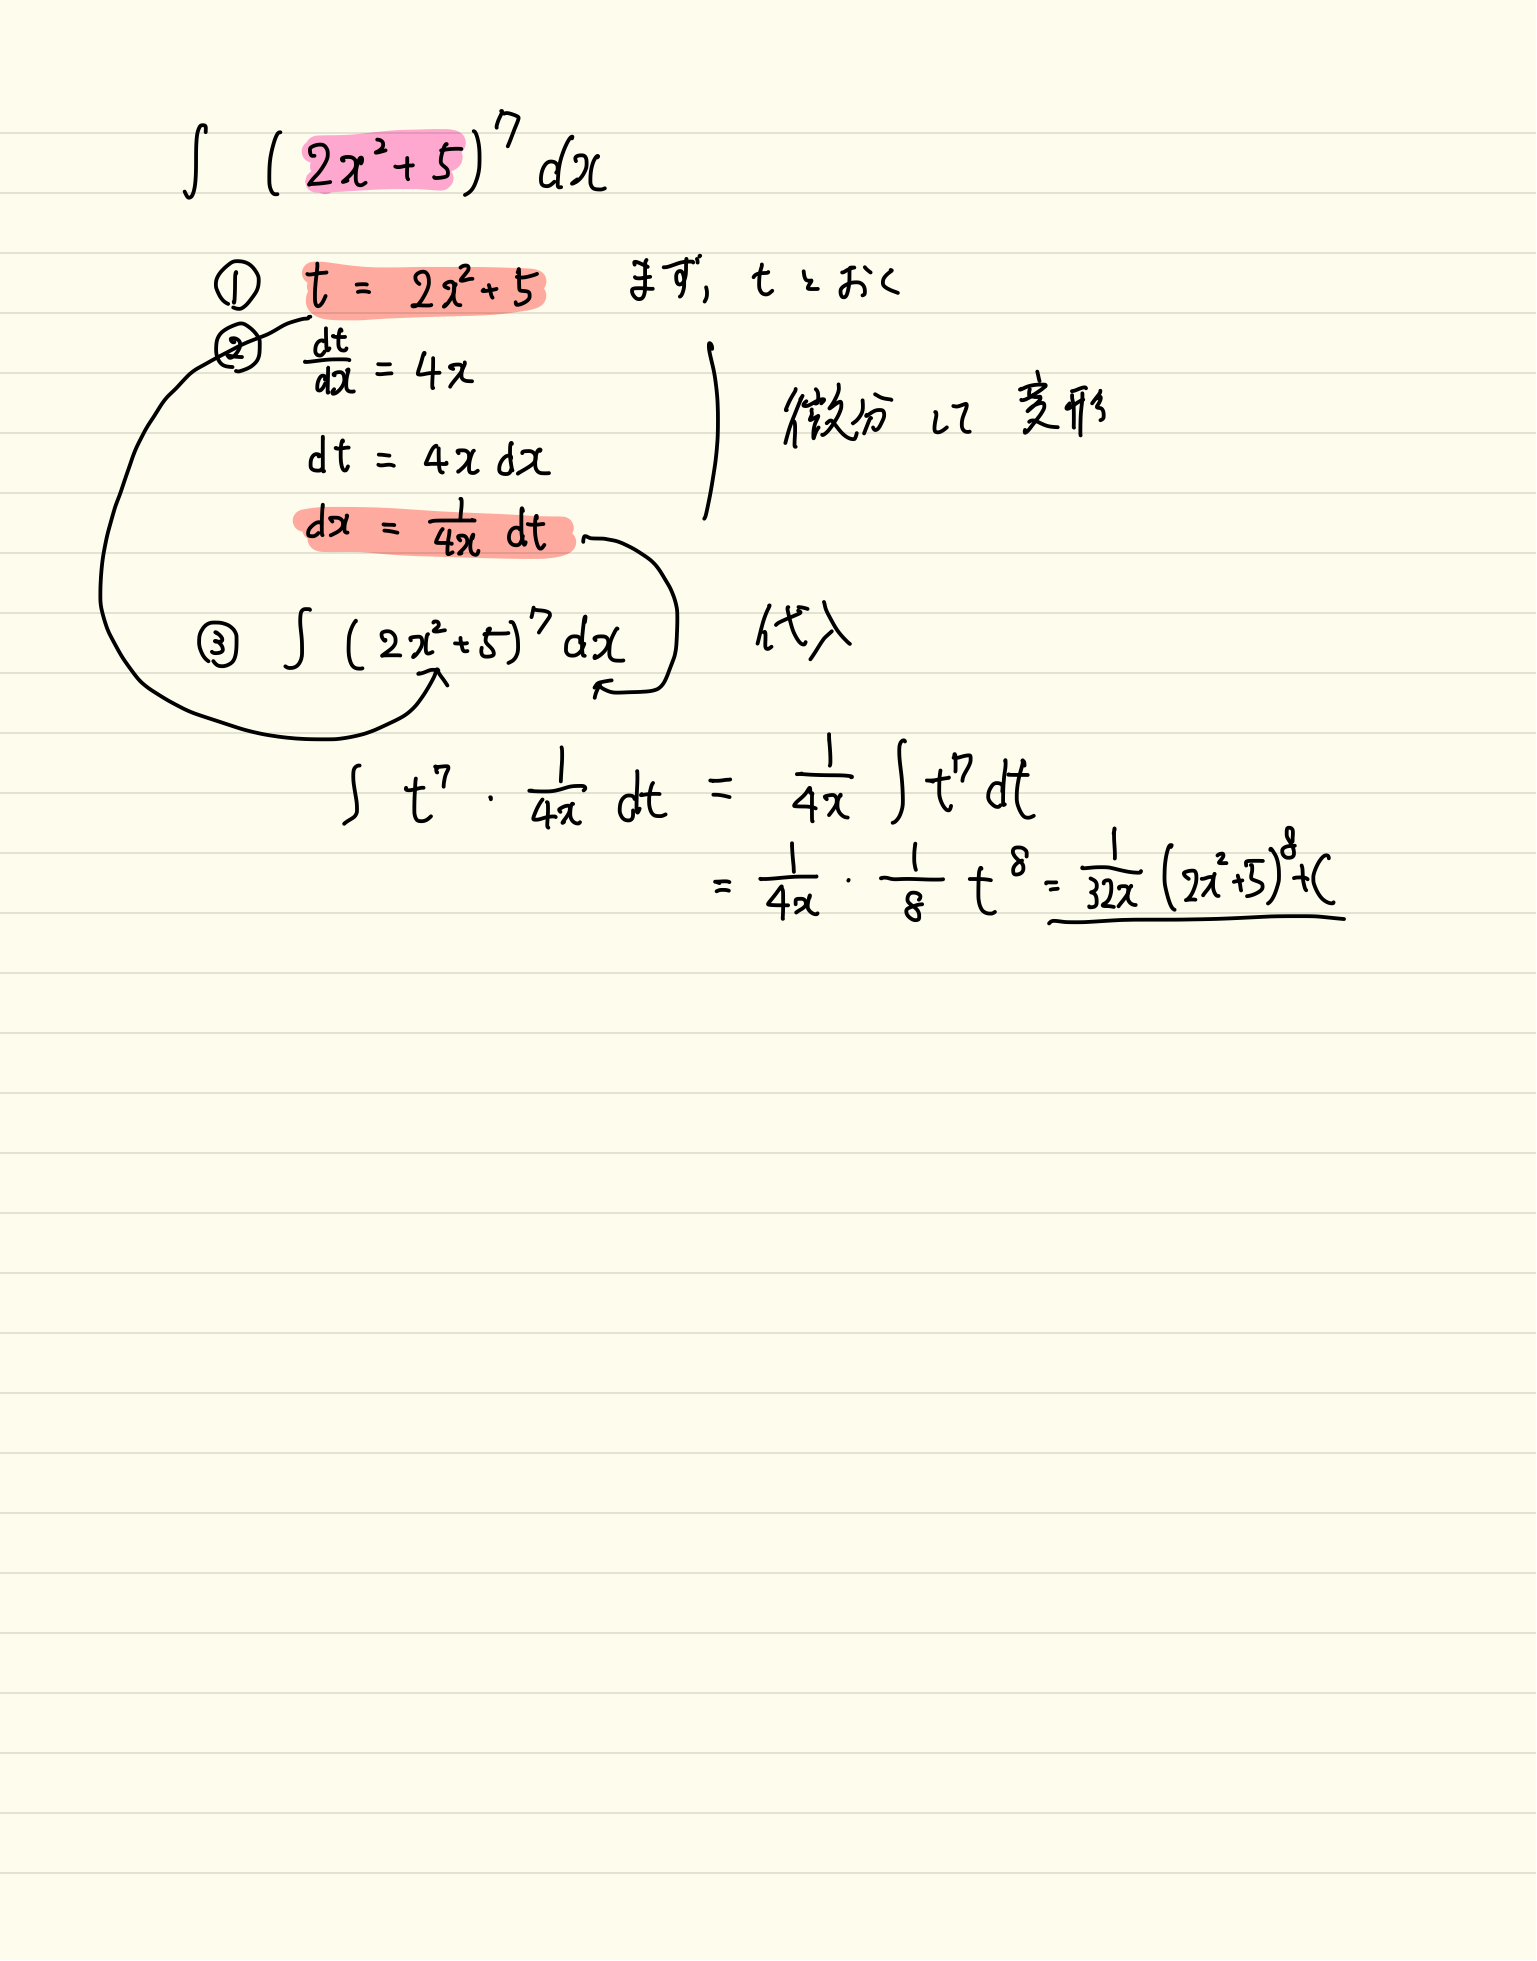 ∫ (2x²+5)⁷ dx
① t = 2x²+5 まず, t とおく
② dt/dx = 4x
dt = 4x dx 微分して変形
dx = 1/4x dt
③ ∫ (2x²+5)⁷ dx 代入
∫ t⁷ · 1/4x dt = 1/4x ∫ t⁷ dt
= 1/4x · 1/8 t⁸ = 1/32x (2x²+5)⁸+C